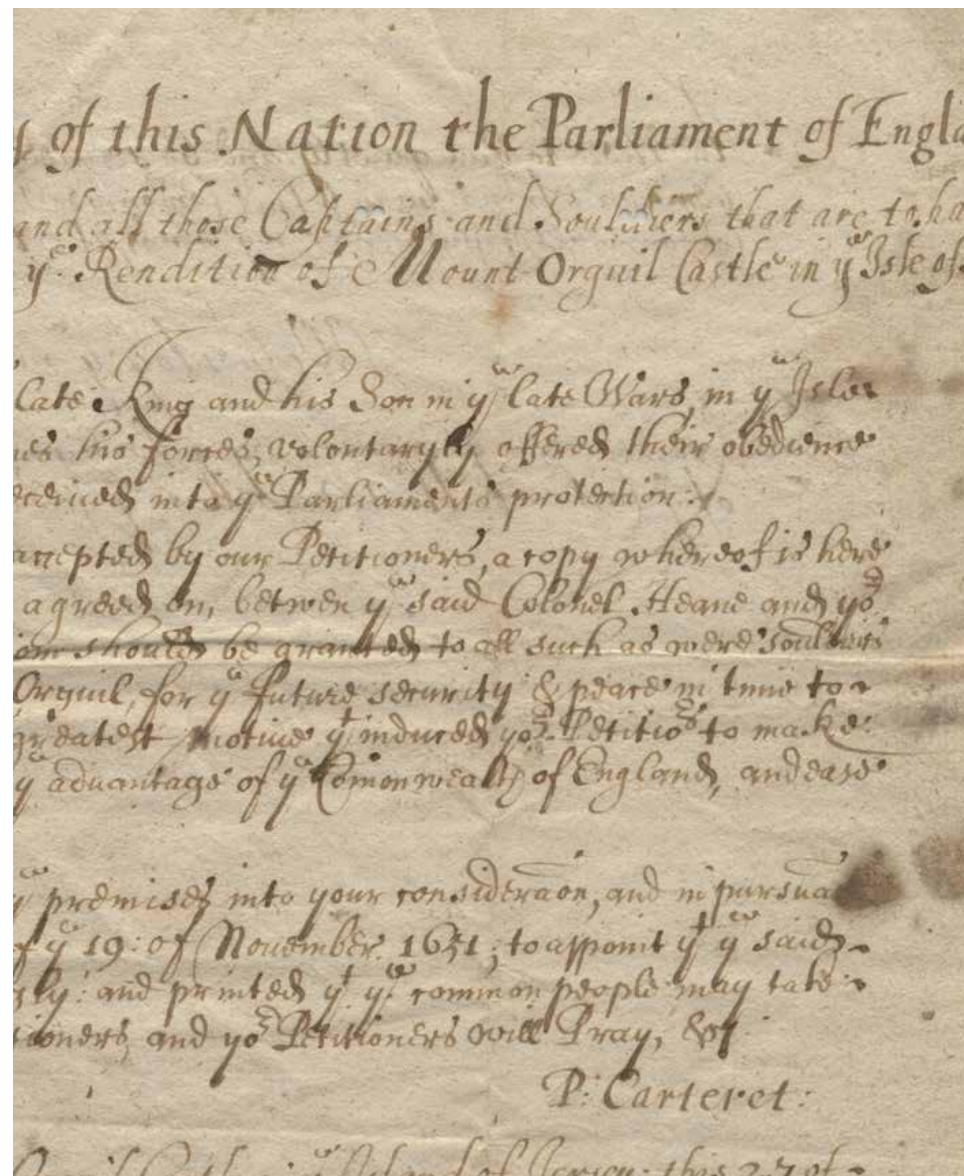 of this Nation the Parliament of Engla
and all those Captains and Souldiers that are to ha
yᵉ Rendition of Mount Orguil Castle in yᵉ Isle of
late King and his Son in yᵉ late Wars, in yᵉ Isle
his forces, voluntaryly offered their obedience
eceiued into yᵉ Parliaments protection.
accepted by our Petitioners, a copy whereof is here
agreed on, betwen yᵉ said Colonel Heane and yoʳ
should be granted to all such as were souldiers
Orguil, for yᵉ future security & peace in time to
greatest motiue yᵗ induced yoʳ Petitioʳˢ to make
yᵉ aduantage of yᵉ Comonwealth of England, and ease
yᵉ premises into your consideraon, and in pursua
f yᵉ 19: of November. 1651; to appoint yᵗ yᵉ said
ly: and printed yᵗ yᵉ common people may take
tioners, and yoʳ Petitioners will Pray, &c
P: Carteret:
this